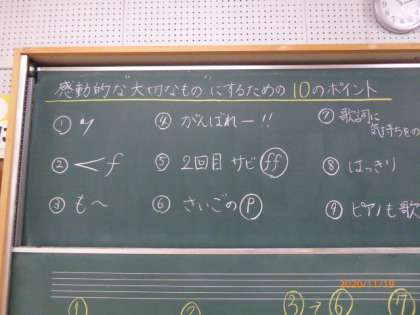 感動的な"大切なもの"にするための10のポイント
①
② < f
③ も～
④ がんばれー!!
⑤ 2回目 サビ ff
⑥ さいごの p
⑦ 歌詞に
気持ちをの
⑧ はっきり
⑨ ピアノも歌
① ② ③→⑥ ⑦
2020/11/19